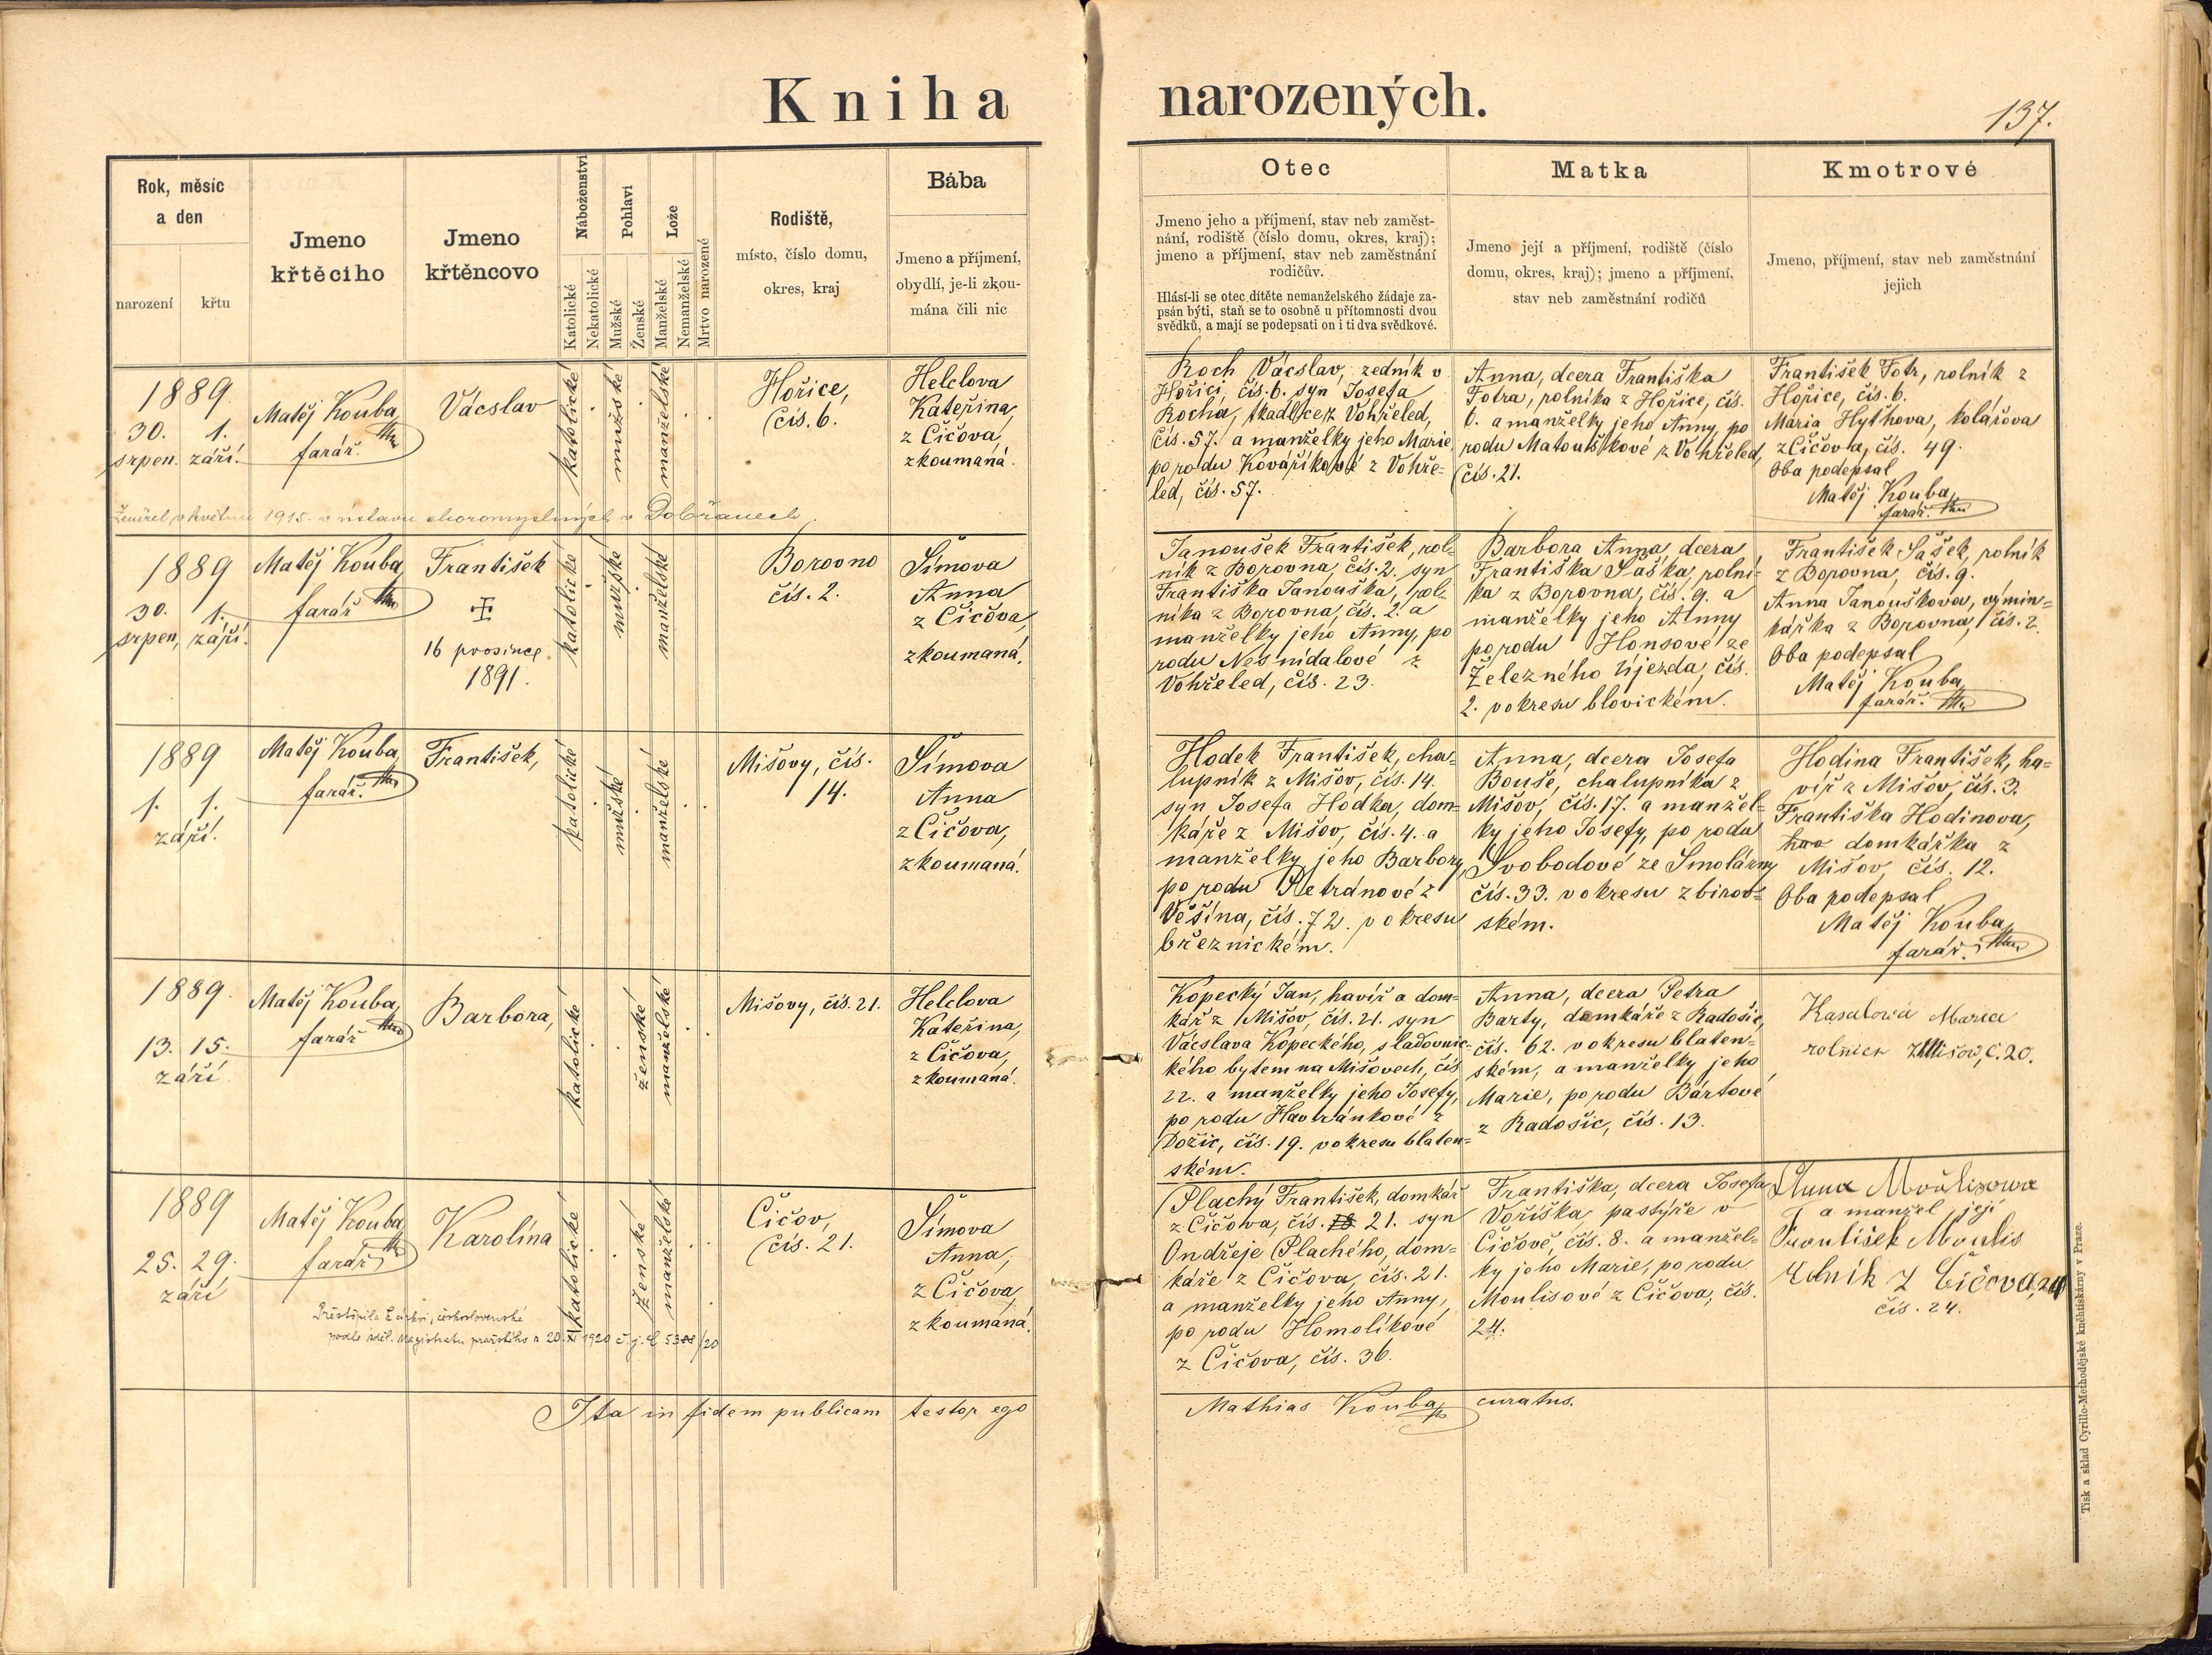 Kniha narozených.
137.
Rok, měsíc
a den
narození
křtu
Jmeno
křtěciho
Jmeno
křtěncovo
Náboženství
Katolické
Nekatolické
Pohlaví
Mužské
Ženské
Lože
Manželské
Nemanželské
Mrtvo narozené
Rodiště,
místo, číslo domu,
okres, kraj
Bába
Jmeno a příjmení,
obydlí, je-li zkou-
mána čili nic
Otec
Jmeno jeho a příjmení, stav neb zaměst-
nání, rodiště (číslo domu, okres, kraj);
jmeno a příjmení, stav neb zaměstnání
rodičův.
Hlásí-li se otec dítěte nemanželského žádaje za-
psán býti, staň se to osobně u přítomnosti dvou
svědků, a mají se podepsati on i ti dva svědkové.
Matka
Jmeno její a příjmení, rodiště (číslo
domu, okres, kraj); jmeno a příjmení,
stav neb zaměstnání rodičů
Kmotrové
Jmeno, příjmení, stav neb zaměstnání
jejich
1889
30. 1.
srpen. září.
Matěj Kouba,
farář.
Vácslav
katolické
mužské
manželské
Hořice,
čís. 6.
Helclova
Kateřina,
z Čičova,
zkoumaná.
Koch Vácslav, zedník v
Hořici, čís. 6. syn Josefa
Kocha, tkadlce z Vohřeled,
čís. 57. a manželky jeho Marie
po rodu Kováříkové z Vohře-
led, čís. 57.
Anna, dcera Františka
Fotra, rolníka z Hořice, čís.
6. a manželky jeho Anny, po
rodu Matouškové z Vohřeled,
čís. 21.
František Fotr, rolník z
Hořice, čís. 6.
Maria Hythova, kolářova
z Čičova, čís. 49.
Oba podepsal
Matěj Kouba,
farář.
Zemřel v květnu 1915. v ústavu choromyslných v Dobřanech
1889
30. 1.
srpen, září.
Matěj Kouba,
farář
František
16 prosince
1891.
katolické
mužské
manželské
Borovno
čís. 2.
Šimova
Anna
z Čičova,
zkoumaná.
Janoušek František, rol-
ník z Borovna, čís. 2. syn
Františka Janouška, rol-
níka z Borovna, čís. 2. a
manželky jeho Anny, po
rodu Nesnídalové z
Vohřeled, čís. 23.
Barbora Anna, dcera
Františka Saška, rolní-
ka z Borovna, čís. 9. a
manželky jeho Anny
po rodu Honsové ze
Železného Újezda, čís.
2. v okresu blovickém.
František Sašek, rolník
z Borovna, čís. 9.
Anna Janouškova, výmin-
kářka z Borovna, čís. 2.
Oba podepsal
Matěj Kouba,
farář.
1889
1. 1.
září.
Matěj Kouba,
farář.
František,
katolické
mužské
manželské
Mišovy, čís.
14.
Šimova
Anna
z Čičova,
zkoumaná.
Hodek František, cha-
lupník z Mišov, čís. 14.
syn Josefa Hodka, dom-
káře z Mišov, čís. 4. a
manželky jeho Barbory,
po rodu Petránové z
Věšína, čís. 72. v okresu
březnickém.
Anna, dcera Josefa
Bouše, chalupníka z
Mišov, čís. 17. a manžel-
ky jeho Josefy, po rodu
Svobodové ze Smolárny
čís. 33. v okresu zbirov-
ském.
Hodina František, ha-
víř z Mišov, čís. 3.
Františka Hodinova,
domkářka z
Mišov, čís. 12.
Oba podepsal
Matěj Kouba,
farář.
1889.
13. 15.
září
Matěj Kouba,
farář
Barbora,
katolické
ženské
manželské
Mišovy, čís. 21.
Helclova
Kateřina,
z Čičova,
zkoumaná.
Kopecký Jan, havíř a dom-
kář z Mišov, čís. 21. syn
Vácslava Kopeckého, sladovnic-
kého bytem na Mišovech, čís
22. a manželky jeho Josefy,
po rodu Havránkové z
Dožic, čís. 19. v okresu blaten-
ském.
Anna, dcera Petra
Barty, domkáře z Radošic,
čís. 62. v okresu blaten-
ském, a manželky jeho
Marie, po rodu Bártové
z Radošic, čís. 13.
Kasalová Maria
rolnice z Mišov, č. 20.
1889
25. 29.
září
Matěj Kouba,
farář
Karolína
katolické
ženské
manželské
Čičov,
čís. 21.
Šimova
Anna,
z Čičova,
zkoumaná.
Plachý František, domkář
z Čičova, čís. 21. syn
Ondřeje Plachého, dom-
káře z Čičova, čís. 21.
a manželky jeho Anny,
po rodu Homolíkové
z Čičova, čís. 36.
Františka, dcera Josefa
Voříška, pastýře v
Čičově, čís. 8. a manžel-
ky jeho Marie, po rodu
Moulisové z Čičova, čís.
24.
Anna Moulisowa
a manžel její
František Moulis
rolník z Čičova, 24
čís. 24.
Přestoupila k církvi československé
podle sděl. Magistrátu pražského z 20. XI 1920 č. j.
Ita in fidem publicam testor ego
Mathias Kouba, curatus.
Tisk a sklad Cyrillo-Methodějské kněhtiskárny v Praze.